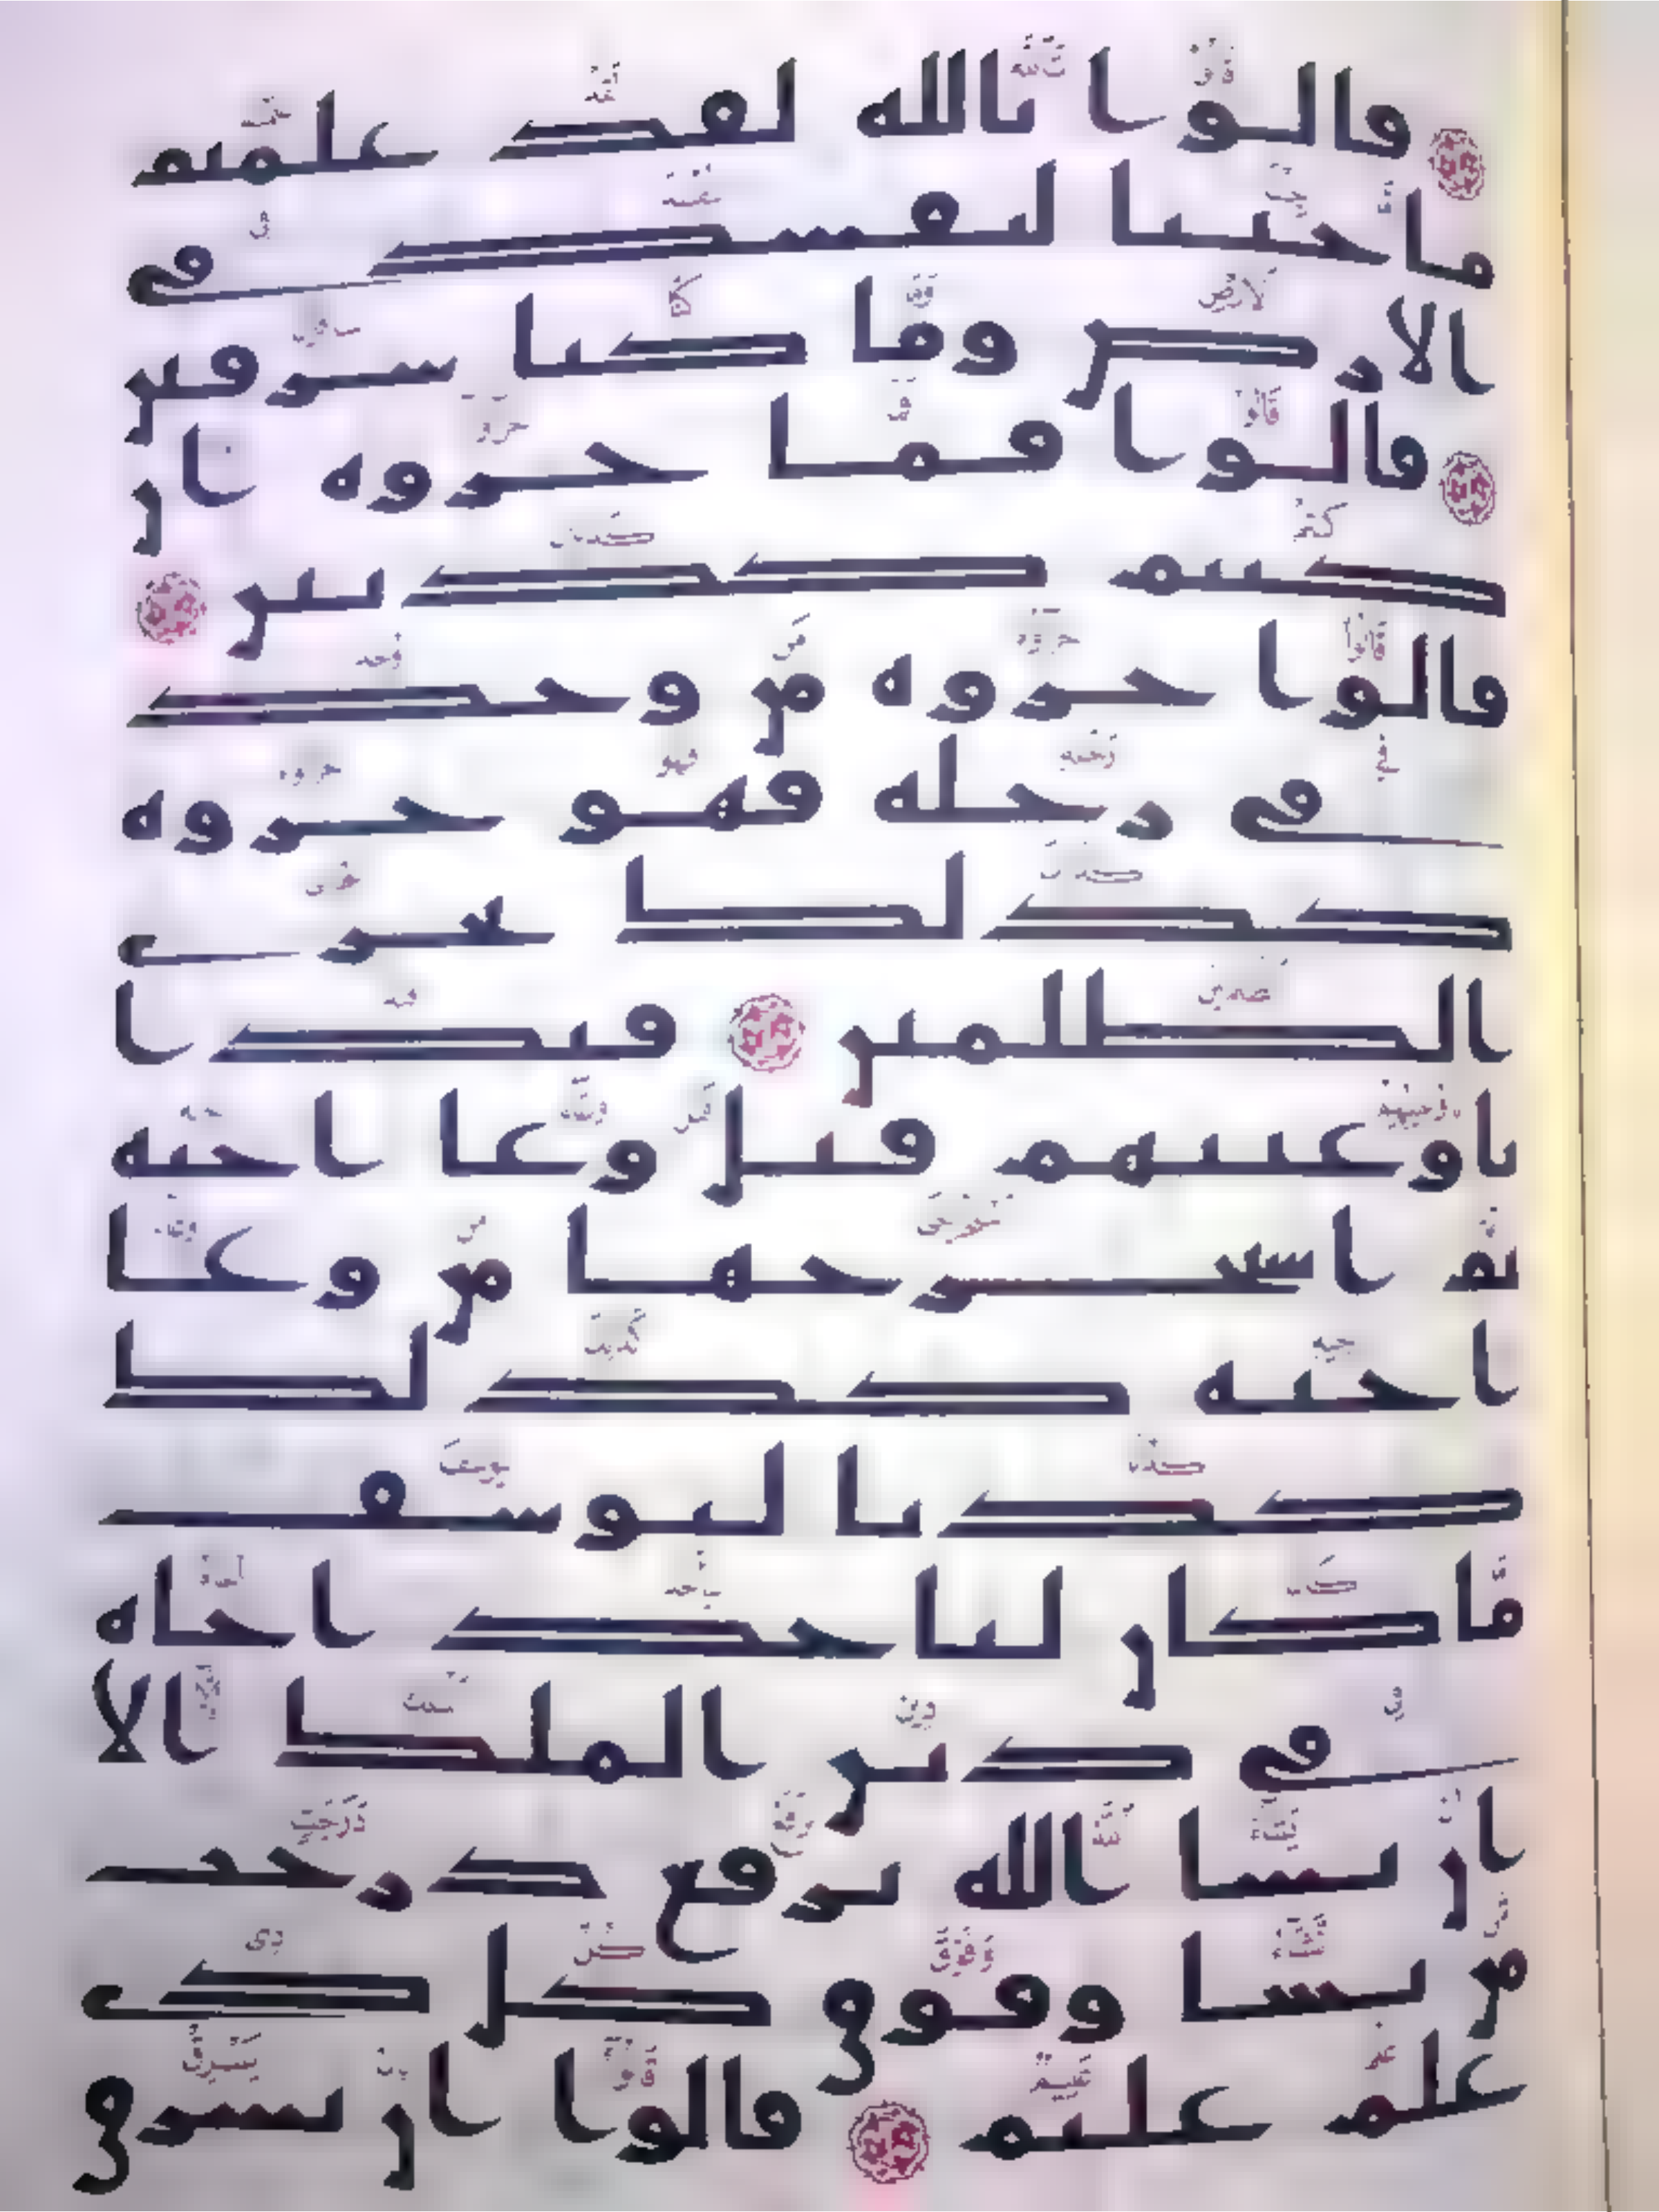 قالوا تالله لقد علمتم
ما جينا لنفسد في
الارض وما كنا سرقين
قالوا فما جزوه ان
كنتم كذبين
قالوا جزوه من وجد
في رحله فهو جزوه
كذلك نجزي
الظلمين فبدا
باوعيتهم قبل وعا اخيه
ثم استخرجها من وعا
اخيه كذلك
كدنا ليوسف
ما كان لياخذ اخاه
في دين الملك الا
ان يشا الله نرفع درجت
من نشا وفوق كل ذي
علم عليم قالوا ان يسرق